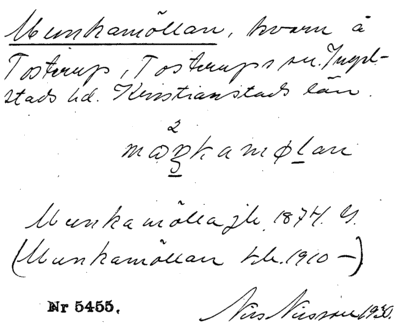 Munkamöllan, kvarn å
Tosterup, Tosterups sn. Ingel-
stads hd. Kristianstads län.
2
maŋkamølan
Munkamölla jb. 1874.
(Munkamöllan kb. 1910 –)
Nr 5455.
Nils Nilsson 1930.